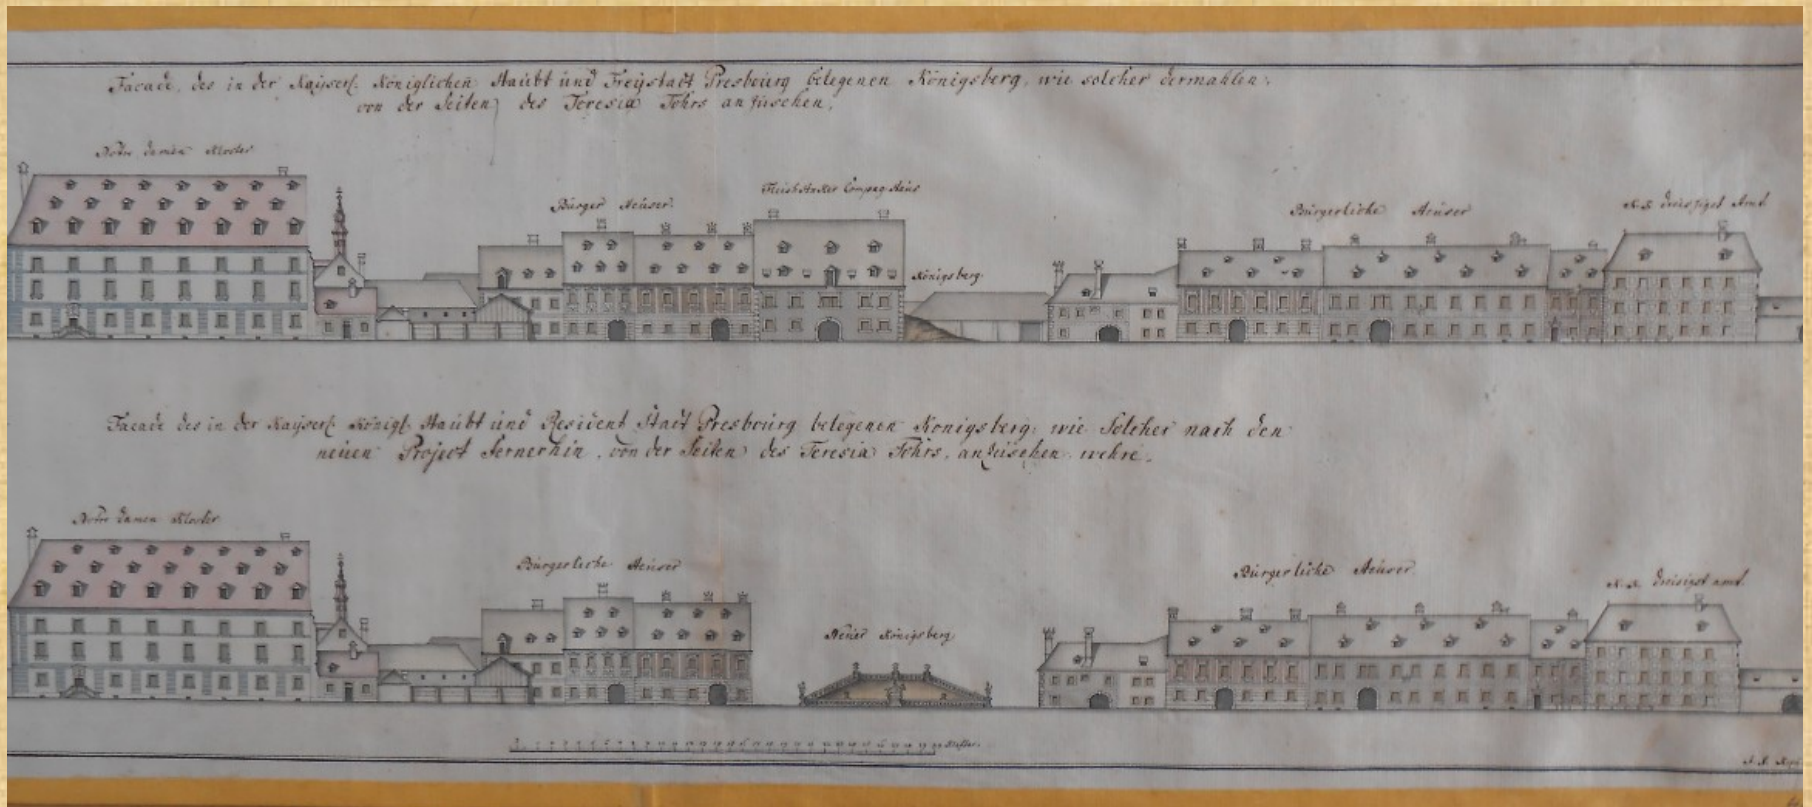 Facade, des in der Kayserl. Königlichen Haubt und Freystadt Presbourg belegenen Königsberg, wie solcher dermahlen,
von der Seiten des Teresia Tohrs anzusehen,
Notre Damen Kloster
Bürger Heüser
Königsberg
Bürgerliche Heüser
K. K. Amt
Facade des in der Kayserl. Königl. Haubt und Resident Stadt Presbourg belegenen Königsberg, wie Solcher nach den
neuen Project fernerhin, von der Seiten des Teresia Tohrs, anzüsehen wehre.
Notre Damen Kloster
Bürgerliche Heüser
Neüer Königsberg
Bürgerliche Heüser
K. K. Dreisigst amt.
Klafter.